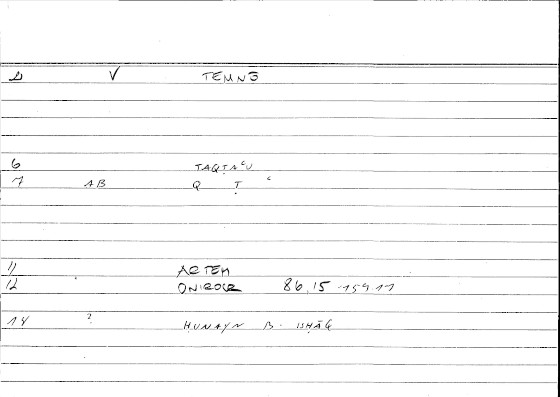 V TEMNŌ
6 TAQṬAʿU
7 AB Q Ṭ ʿ
11 ARTEM
12 ONIROCR 86,15 - 159 11
14 ? HUNAYN B. ISḤĀQ